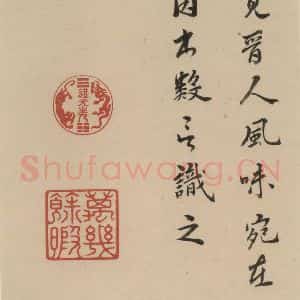 見晉人風味宛在
因書數言識之
Shufawang.CN
萬幾
餘暇